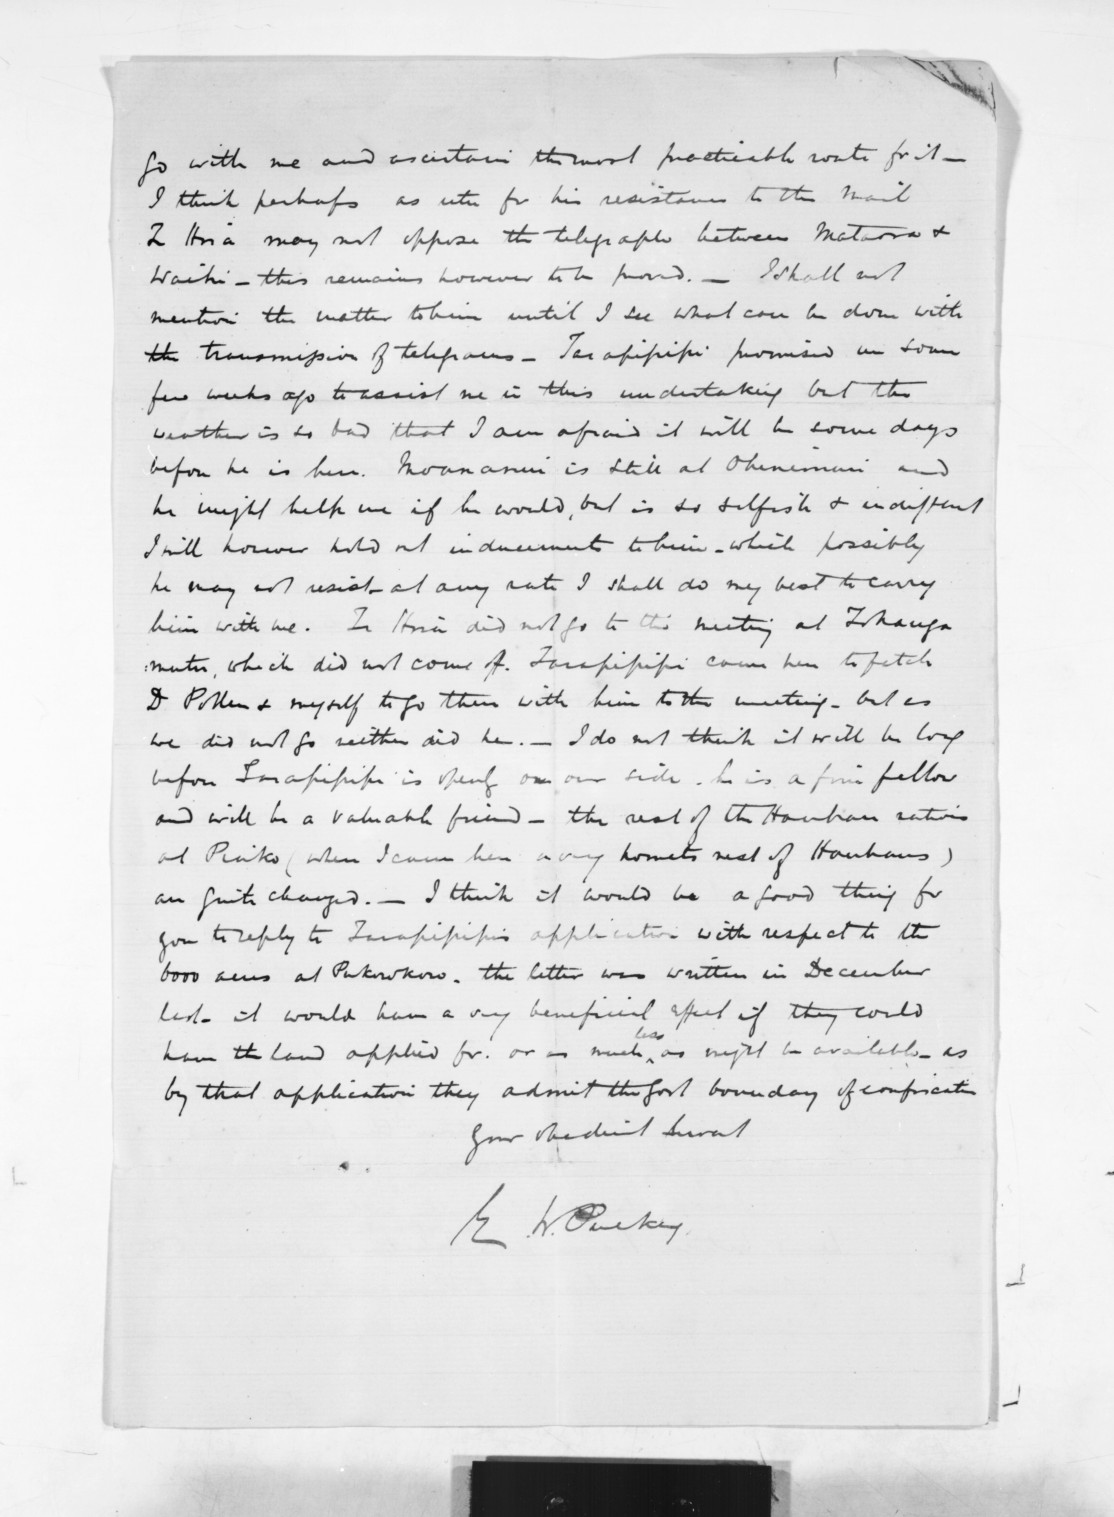 go with me and ascertain the most practicable route for it —
I think perhaps as utu for his resistance to the Mail
Te Hira may not oppose the telegraph between Mataora &
Waihi — this remains however to be proved. — I shall not
mention the matter to him until I see what can be done with
the transmission of telegrams — Tarapipipi promised me some
few weeks ago to assist me in this undertaking but the
weather is so bad that I am afraid it will be some days
before he is here. Moananui is still at Ohinemuri and
he might help me if he would, but is so selfish & indifferent
I will however hold out inducements to him — which possibly
he may not resist — at any rate I shall do my best to carry
him with me. Te Hira did not go to the meeting at Tokanga
mutu, which did not come off. Tarapipipi came here to fetch
Dr Pollen & myself to go there with him to the meeting — but as
we did not go neither did he. — I do not think it will be long
before Tarapipipi is openly on our side. he is a fine fellow
and will be a valuable friend — the rest of the Hauhau natives
at Piako (when I came here a very hornets nest of Hauhaus)
are quite changed. — I think it would be a good thing for
you to reply to Tarapipipis application with respect to the
6000 acres at Pukorokoro. the letter was written in December
last — it would have a very beneficial effect if they could
have the land applied for. or as much less as might be available — as
by that application they admit the Govt boundary of confiscation
Your obedient Servant
E. W. Puckey.